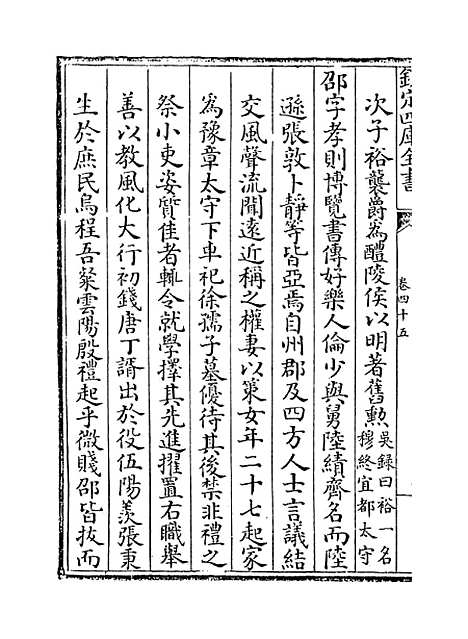 欽定四庫全書
卷四十五
次子裕襲爵為醴陵侯以明著舊勲吳錄曰裕一名
穆終宜都太守
邵字孝則博覽書傳好樂人倫少與舅陸績齊名而陸
遜張敦卜靜等皆亞焉自州郡及四方人士言議結
交風聲流聞遠近稱之權妻以策女年二十七起家
為豫章太守下車祀徐孺子墓優待其後禁非禮之
祭小吏姿質佳者輒令就學擇其先進擢置右職舉
善以教風化大行初錢唐丁諝出於役伍陽羡張秉
生於庶民烏程吾粲雲陽殷禮起乎微賤邵皆抜而